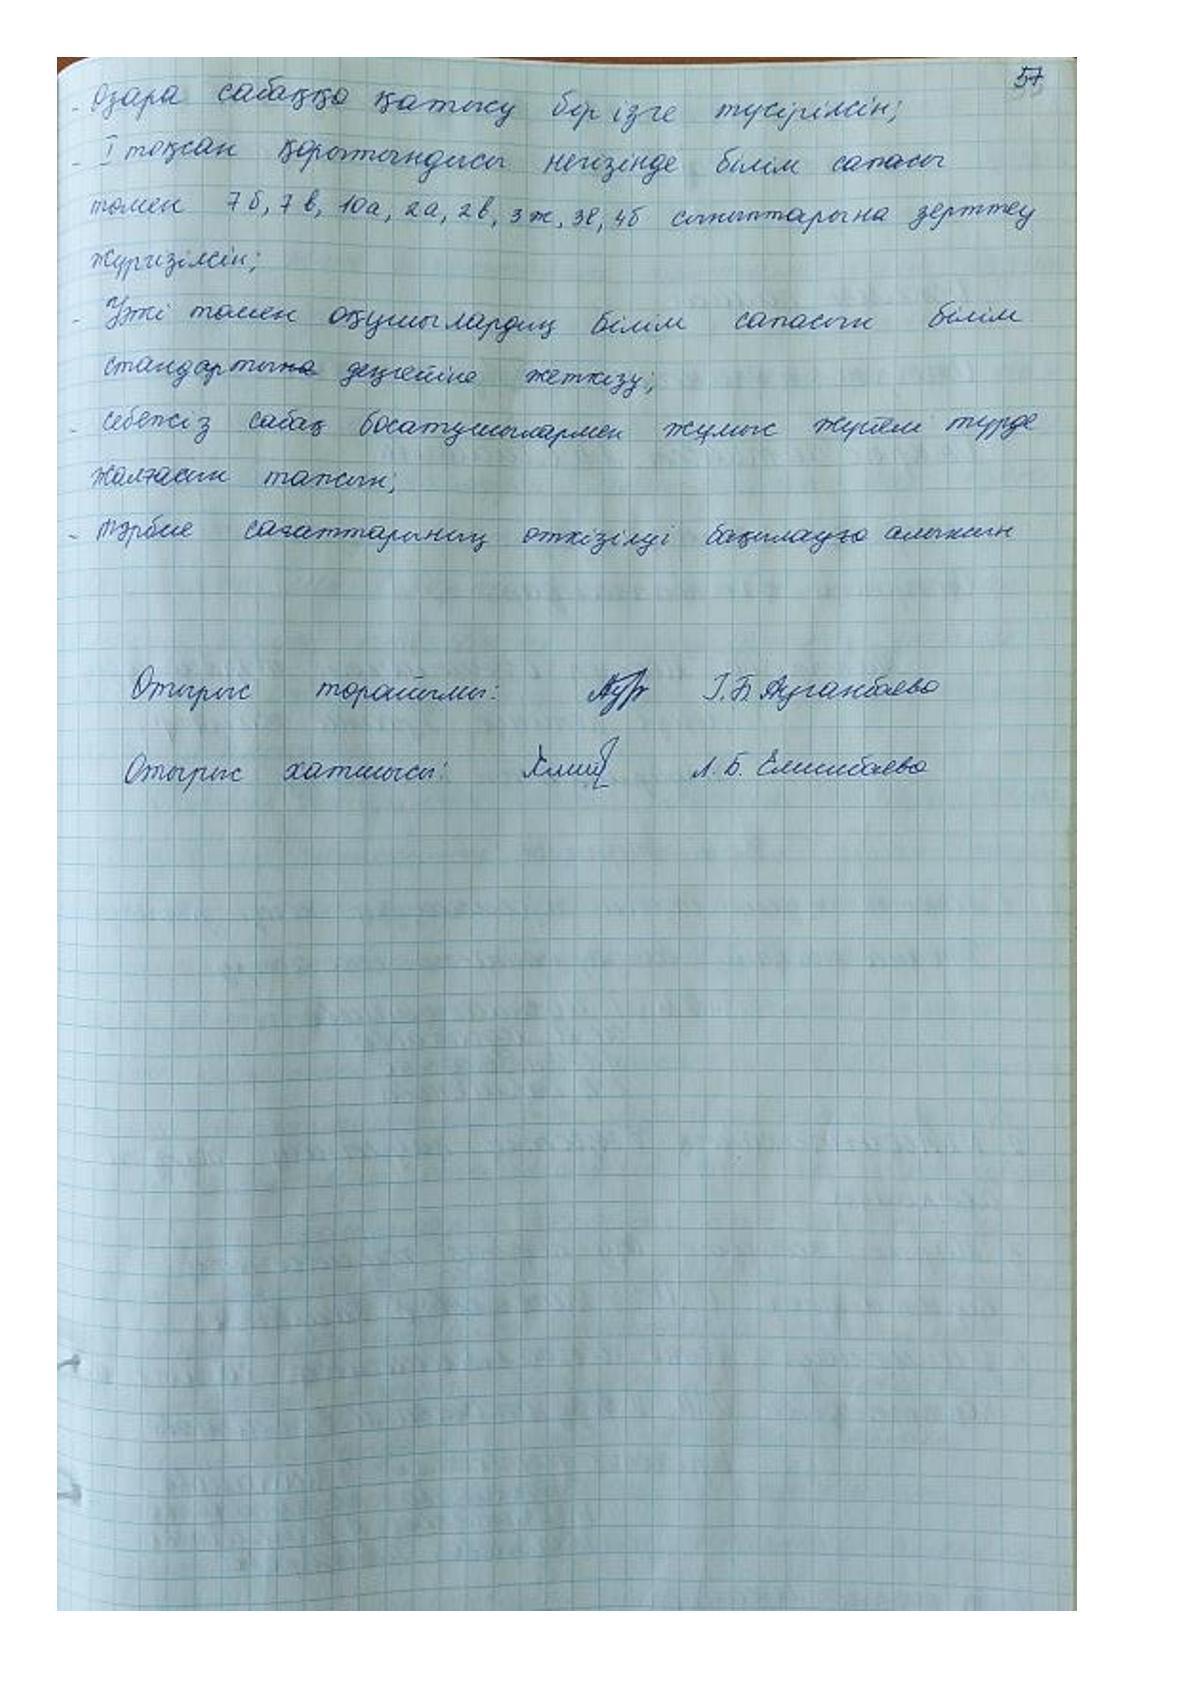 57
- Өзара сабаққа қатысу бір ізге түсірілсін;
- I тоқсан қорытындысы негізінде білім сапасы
төмен 7б, 7в, 10а, 2а, 2в, 3ж, 3е, 4б сыныптарына зерттеу
жүргізілсін;
- Үлгі төмен оқушылардың білім сапасын білім
стандартына деңгейіне жеткізу;
- Себепсіз сабақ босатушылармен жұмыс жүйелі түрде
жалғасын тапсын;
- Тәрбие сағаттарының өткізілуі бақылауға алынсын
Отырыс төрайымы: Г.Б. Ауганбаева
Отырыс хатшысы: Л.Б. Елшибаева